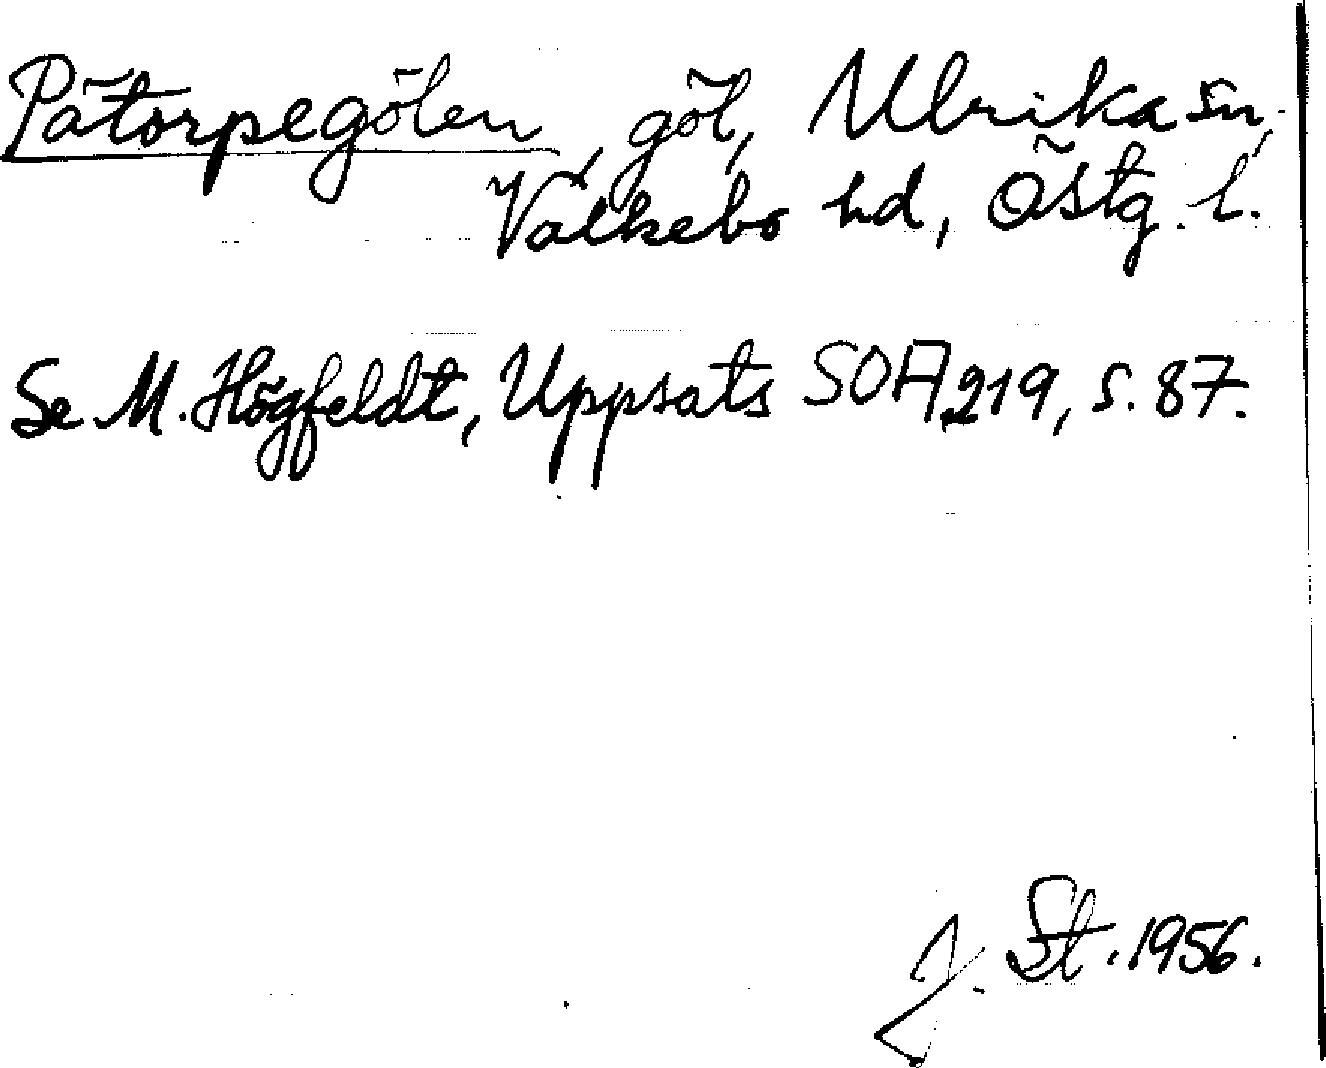 Pätorpegölen, göl, Ulrika sn,
Valkebo hd, Östg. l.
Se M. Högfeldt, Uppsats SOA 219, s. 87.
J. St. 1956.